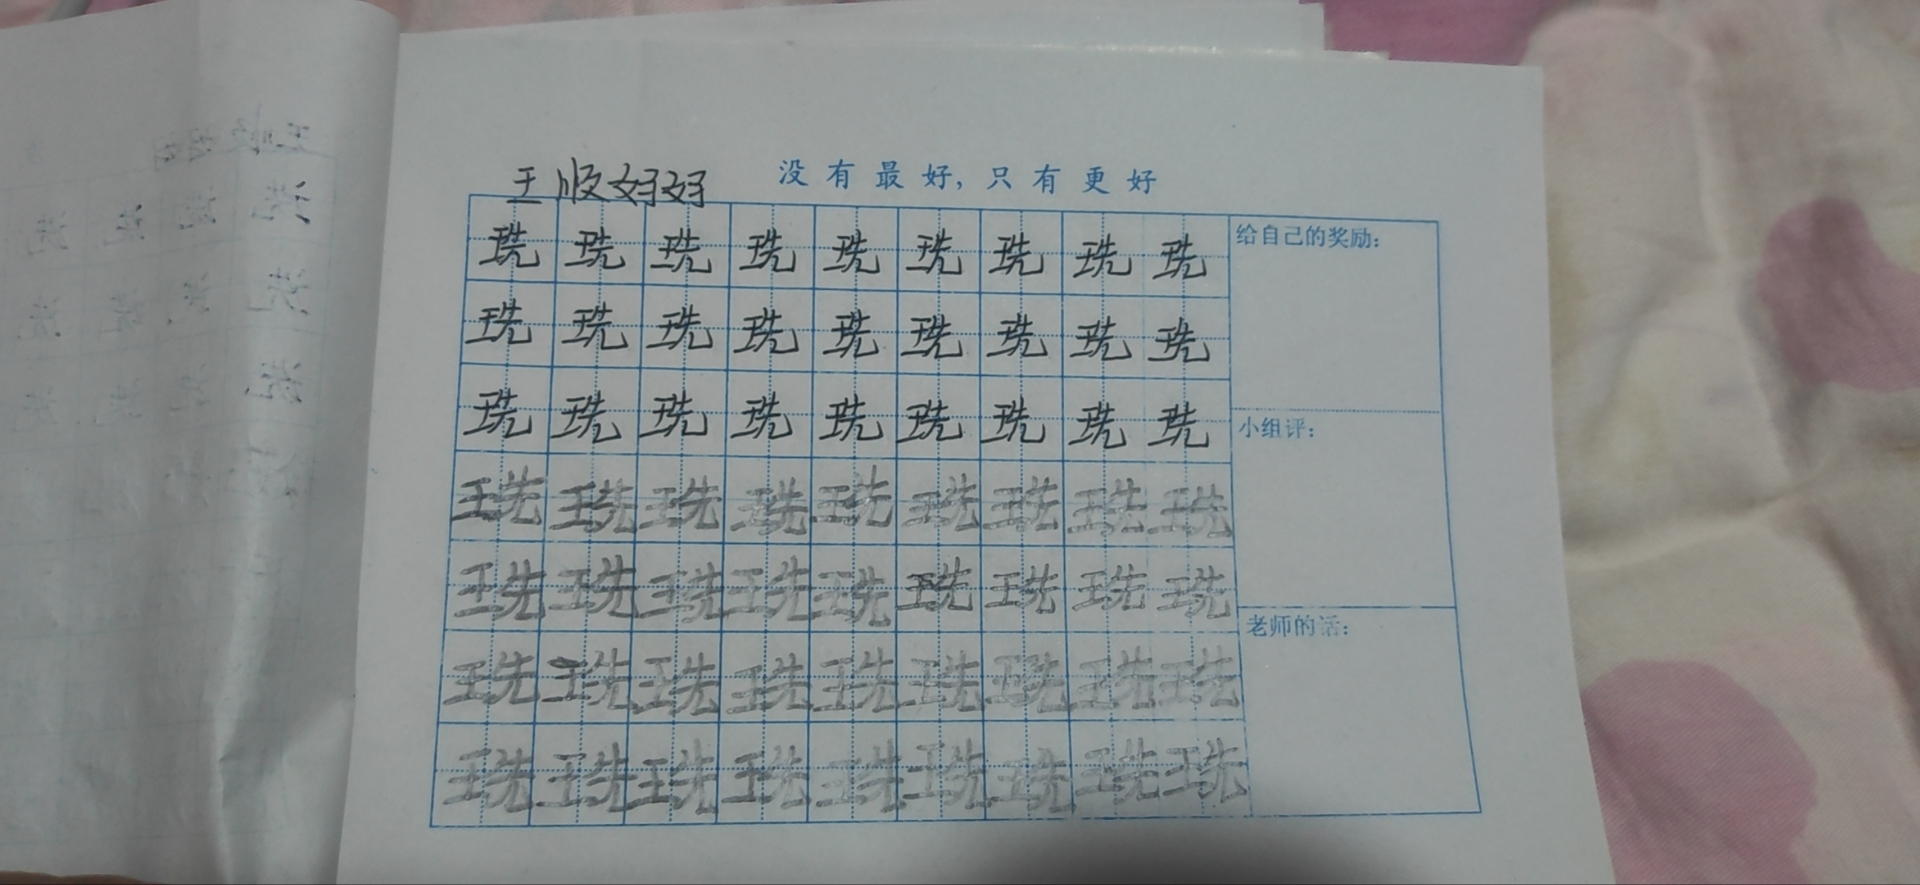 王顺好好
没有最好,只有更好
珗 珗 珗 珗 珗 珗 珗 珗 珗
给自己的奖励:
珗 珗 珗 珗 珗 珗 珗 珗 珗
珗 珗 珗 珗 珗 珗 珗 珗 珗
小组评:
珗 珗 珗 珗 珗 珗 珗 珗 珗
珗 珗 珗 珗 珗 珗 珗 珗 珗
老师的话:
珗 珗 珗 珗 珗 珗 珗 珗 珗
珗 珗 珗 珗 珗 珗 珗 珗 珗